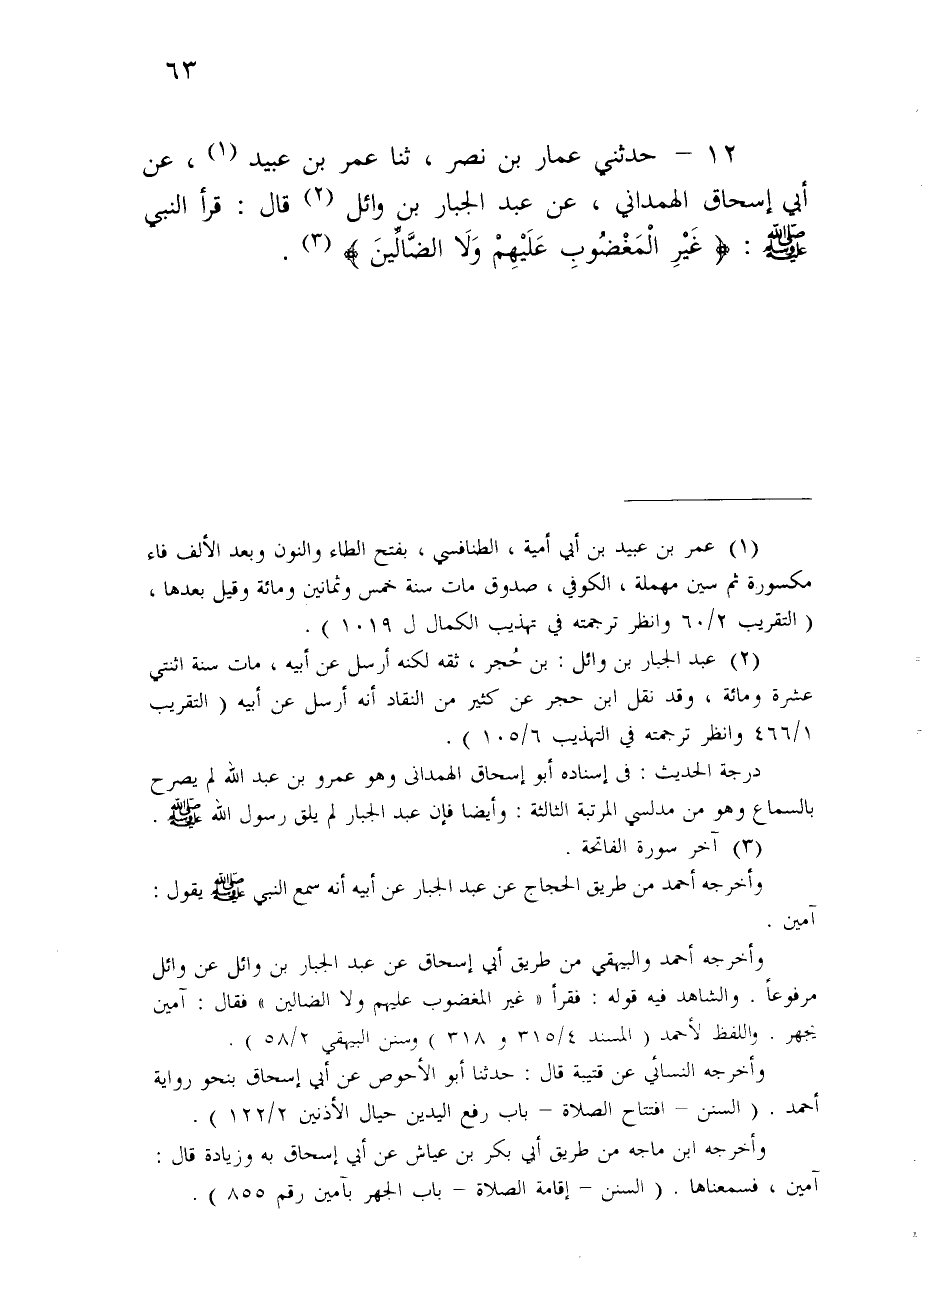 ٦٣
١٢ – حدثني عمار بن نصر ، ثنا عمر بن عبيد (١) ، عن
أبي إسحاق الهمداني ، عن عبد الجبار بن وائل (٢) قال : قرأ النبي
ﷺ : ﴿ غَيْرِ الْمَغْضُوبِ عَلَيْهِمْ وَلَا الضَّالِّينَ ﴾ (٣) .
(١) عمر بن عبيد بن أبي أمية ، الطنافسي ، بفتح الطاء والنون وبعد الألف فاء
مكسورة ثم سين مهملة ، الكوفي ، صدوق مات سنة خمس وثمانين ومائة وقيل بعدها ،
( التقريب ٦٠/٢ وانظر ترجمته في تهذيب الكمال ل ١٠١٩ ) .
(٢) عبد الجبار بن وائل : بن حُجر ، ثقه لكنه أرسل عن أبيه ، مات سنة اثنتي
عشرة ومائة ، وقد نقل ابن حجر عن كثير من النقاد أنه أرسل عن أبيه ( التقريب
٤٦٦/١ وانظر ترجمته في التهذيب ١٠٥/٦ ) .
درجة الحديث : فى إسناده أبو إسحاق الهمدانى وهو عمرو بن عبد الله لم يصرح
بالسماع وهو من مدلسي المرتبة الثالثة : وأيضا فإن عبد الجبار لم يلق رسول الله ﷺ .
(٣) آخر سورة الفاتحة .
وأخرجه أحمد من طريق الحجاج عن عبد الجبار عن أبيه أنه سمع النبي ﷺ يقول :
آمين .
وأخرجه أحمد والبيهقي من طريق أبي إسحاق عن عبد الجبار بن وائل عن وائل
مرفوعاً . والشاهد فيه قوله : فقرأ « غير المغضوب عليهم ولا الضالين » فقال : آمين
يجهر . واللفظ لأحمد ( المسند ٣١٥/٤ و ٣١٨ ) وسنن البيهقي ٥٨/٢ ) .
وأخرجه النسائي عن قتيبة قال : حدثنا أبو الأحوص عن أبي إسحاق بنحو رواية
أحمد . ( السنن – افتتاح الصلاة – باب رفع اليدين حيال الأذنين ١٢٢/٢ ) .
وأخرجه ابن ماجه من طريق أبي بكر بن عياش عن أبي إسحاق به وزيادة قال :
آمين ، فسمعناها . ( السنن – إقامة الصلاة – باب الجهر بآمين رقم ٨٥٥ ) .